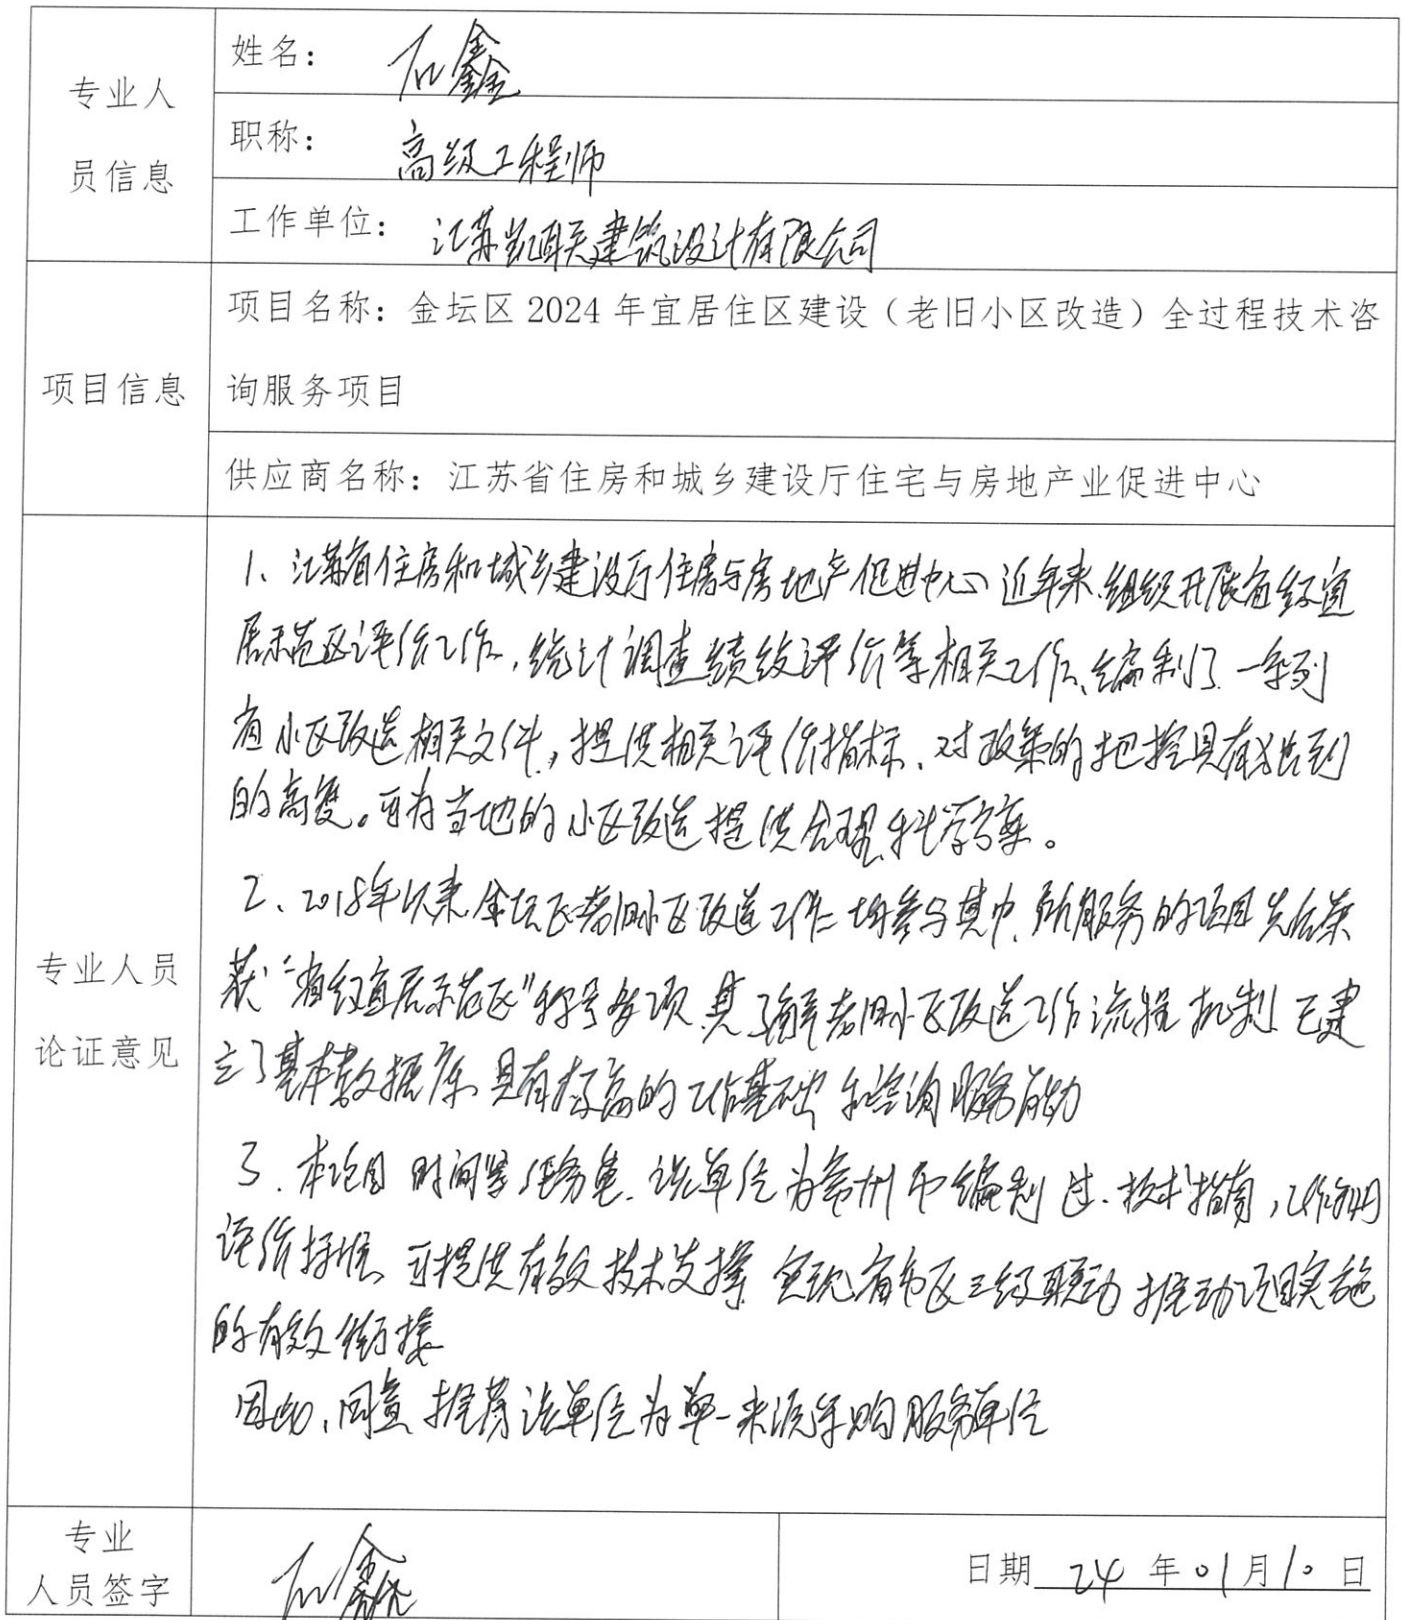 专业人
员信息
姓名： 石鑫
职称： 高级工程师
工作单位： 江苏凯联建筑设计有限公司
项目信息
项目名称：金坛区 2024 年宜居住区建设（老旧小区改造）全过程技术咨
询服务项目
供应商名称：江苏省住房和城乡建设厅住宅与房地产业促进中心
专业人员
论证意见
1、江苏省住房和城乡建设厅住房与房地产促进中心近年来，组织开展省级宜
居示范区评价工作，统计调查绩效评价等相关工作、编制了一系列
省小区改造相关文件，提供相关评价指标、对政策的把控具有独到
的高度。可为当地的小区改造提供合理、科学方案。
2、2018年以来金坛区老旧小区改造工作均参与其中，所服务的项目先后荣
获“省级宜居示范区”称号多项，其了解老旧小区改造工作流程机制 已建
立了基本数据库、具有较高的工作基础和咨询服务能力
3．本项目时间紧任务重．该单位为常州市编制过．技术指南，工作纲
评价标准、可提供有效技术支撑 实现省市区三级联动推动项目实施
的有效衔接
因此，同意推荐该单位为单一来源采购服务单位
专业
人员签字
石鑫
日期 24 年 01 月 10 日